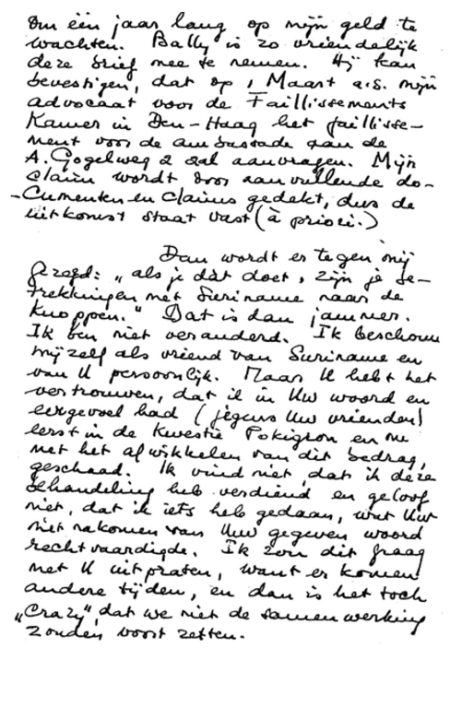 om één jaar lang op mijn geld te
wachten. Bally is zo vriendelijk
deze brief mee te nemen. Hij kan
bevestigen, dat op 1 Maart a.s. mijn
advocaat voor de Faillissements
Kamer in Den-Haag het faillisse-
ment voor de ambassade aan de
A. Gogelweg 2 zal aanvragen. Mijn
claim wordt door aanvullende do-
-cumenten en claims gedekt, dus de
uitkomst staat vast (à priori.)
Dan wordt er tegen mij
gezegd: „als je dàt doet, zijn je be-
trekkingen met Suriname naar de
knoppen." Dat is dan jammer.
Ik ben niet veranderd. Ik beschouw
mijzelf als vriend van Suriname en
van U persoonlijk. Maar U hebt het
vertrouwen, dat ik in Uw woord en
eergevoel had (jegens Uw vrienden)
eerst in de kwestie Pokigron en nu
met het afwikkelen van dit bedrag,
geschaad. Ik vind niet, dat ik deze
behandeling heb verdiend en geloof
niet, dat ik iets heb gedaan, wat Uw
niet nakomen van Uw gegeven woord
rechtvaardigde. Ik zou dit graag
met U uitpraten, want er komen
andere tijden, en dan is het toch
„Crazy", dat we niet de samenwerking
zouden voort zetten.